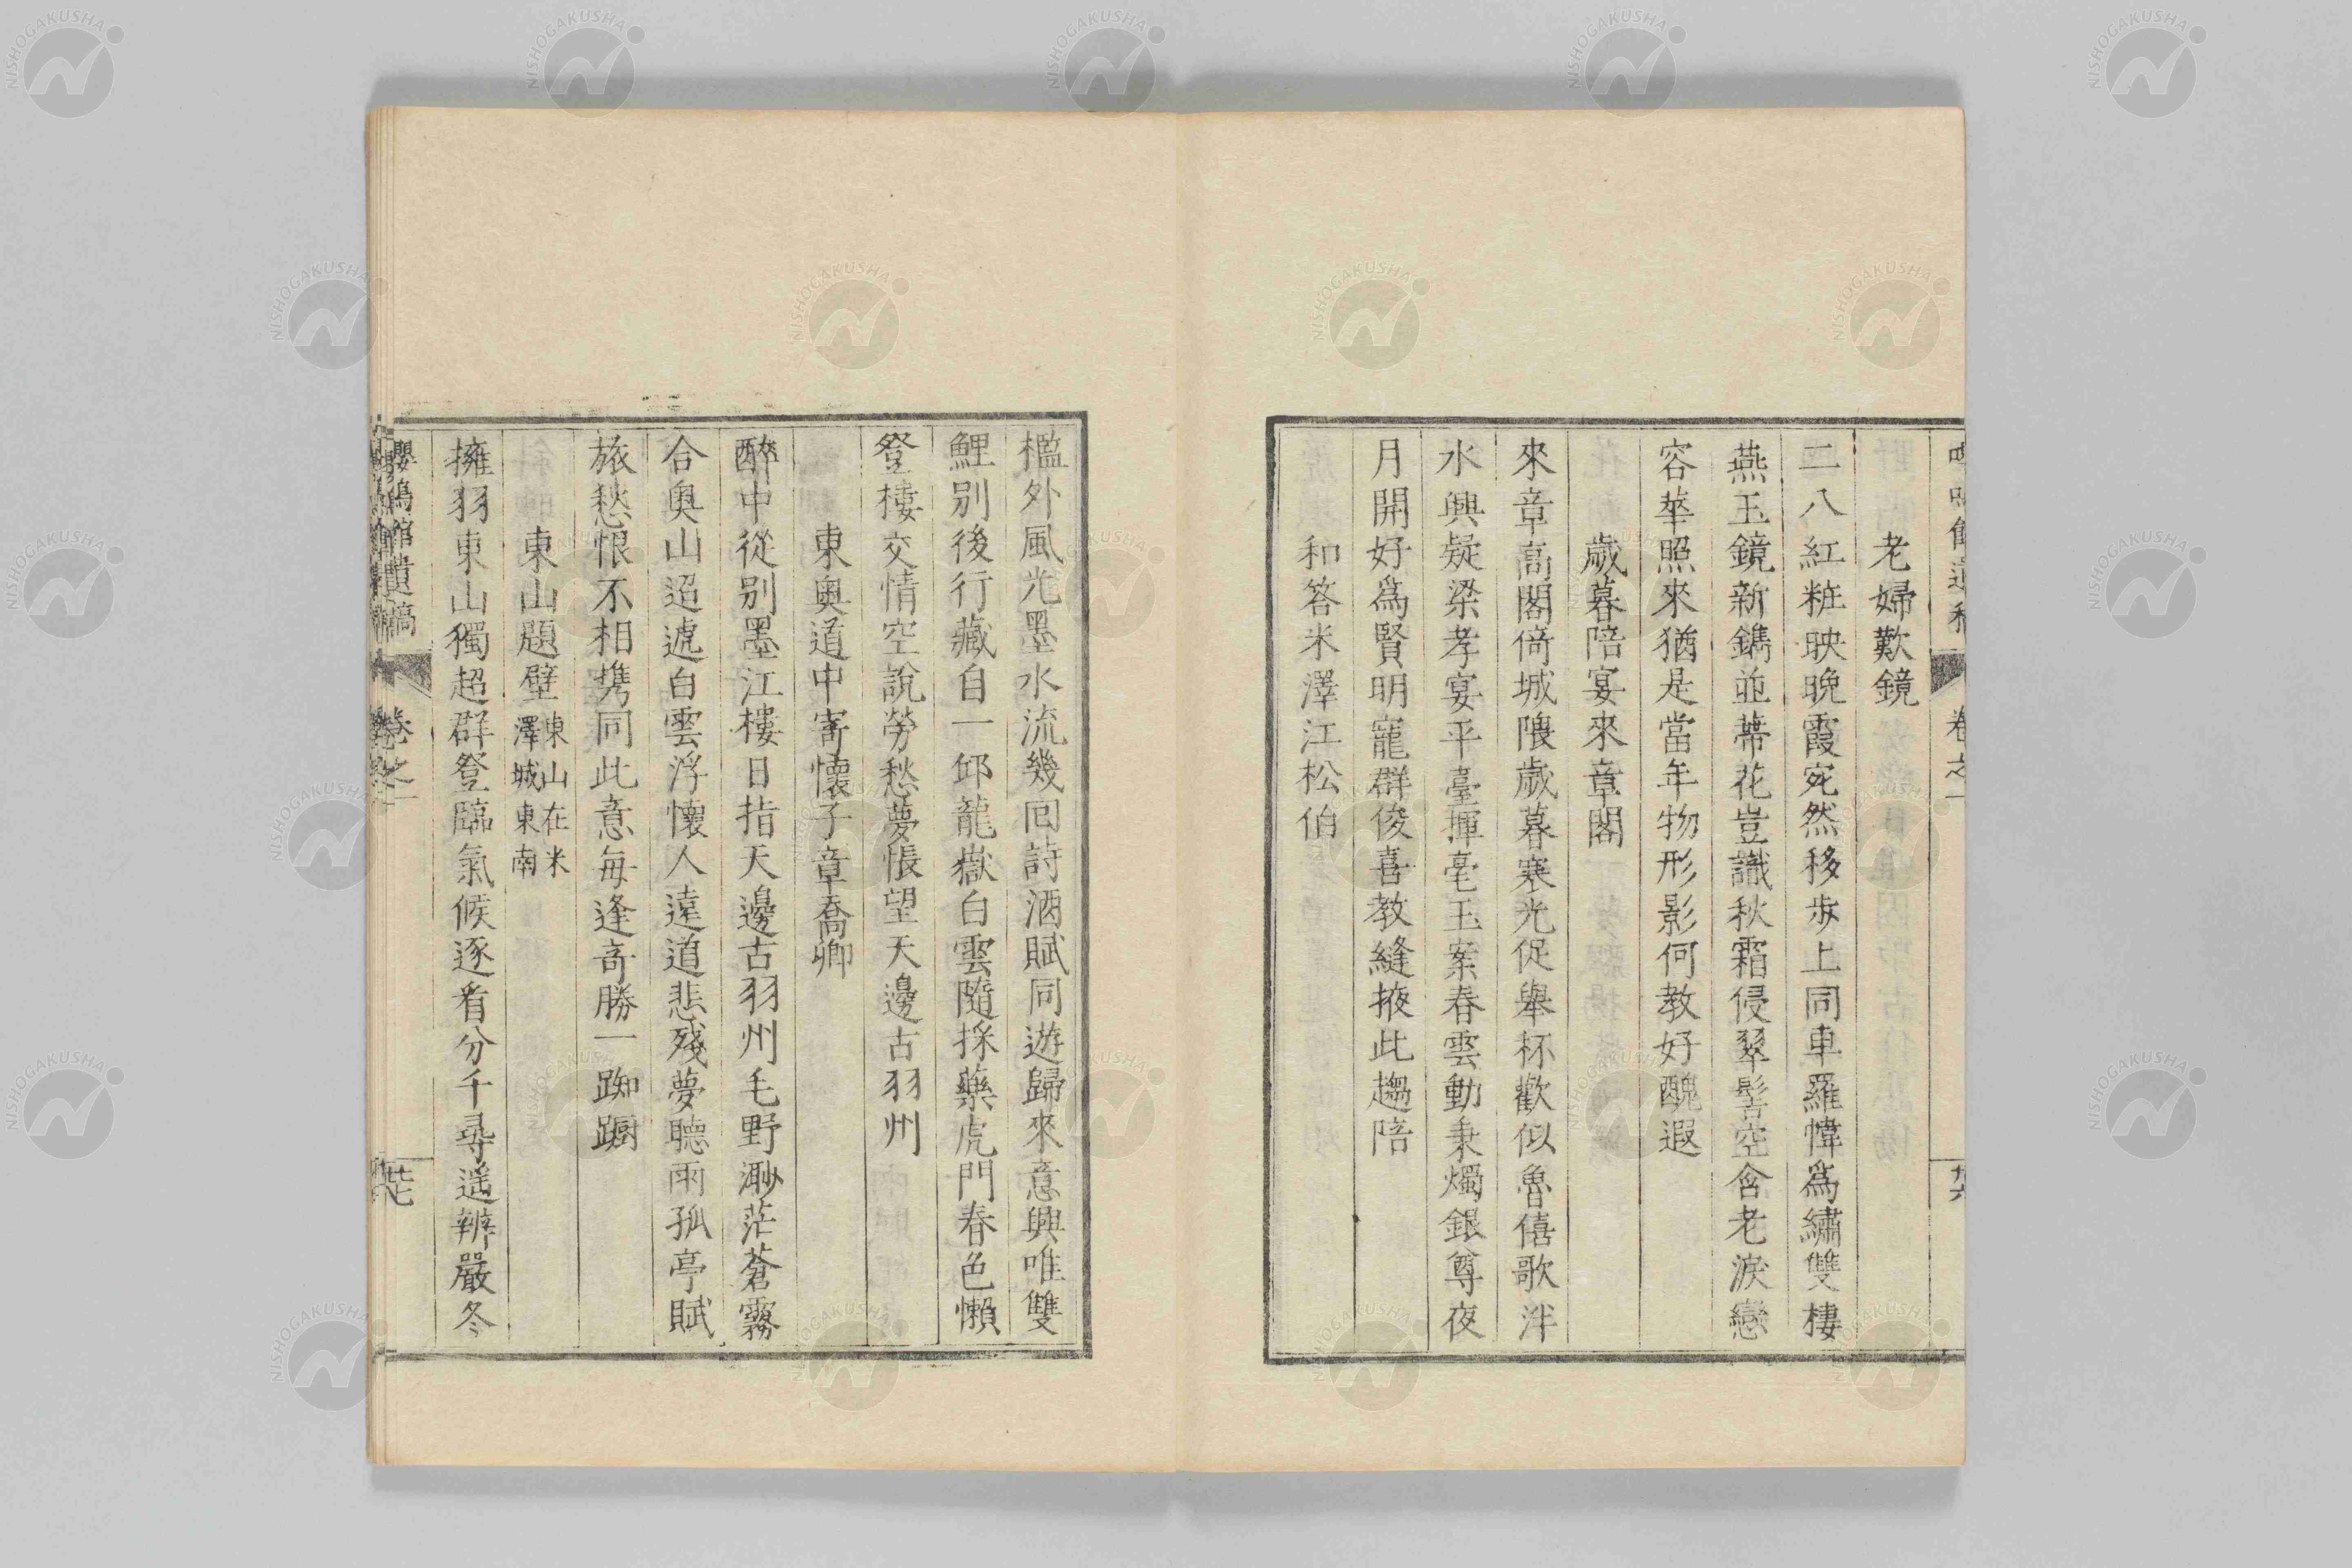 老婦歎鏡
二八紅粧映晩霞宛然移歩上同車羅幃爲繡雙棲
燕玉鏡新鐫並蔕花豈識秋霜侵翠髻空含老淚戀
容華照來猶是當年物形影何教好醜遐
歳暮陪宴來章閣
來章高閣倚城隈歳暮寒光促舉杯歡似魯僖歌泮
水興疑梁孝宴平臺揮毫玉案春雲動秉燭銀尊夜
月開好爲賢明寵群俊喜教縫掖此趨陪
和答米澤江松伯
檻外風光墨水流幾回詩酒賦同遊歸來意興唯雙
鯉別後行藏自一邱龍嶽白雲隨採藥虎門春色懶
登樓交情空說勞愁夢悵望天邊古羽州
東奥道中寄懷子章喬卿
醉中從別墨江樓日指天邊古羽州毛野渺茫蒼霧
合奥山迢遞白雲浮懷人遠道悲殘夢聽雨孤亭賦
旅愁恨不相携同此意毎逢奇勝一踟躕
東山題壁東山在米
澤城東南
擁羽東山獨超群登臨氣候逐看分千尋遥辨嚴冬
嚶鳴館遺稿 卷之一 廿七
NISHOGAKUSHA